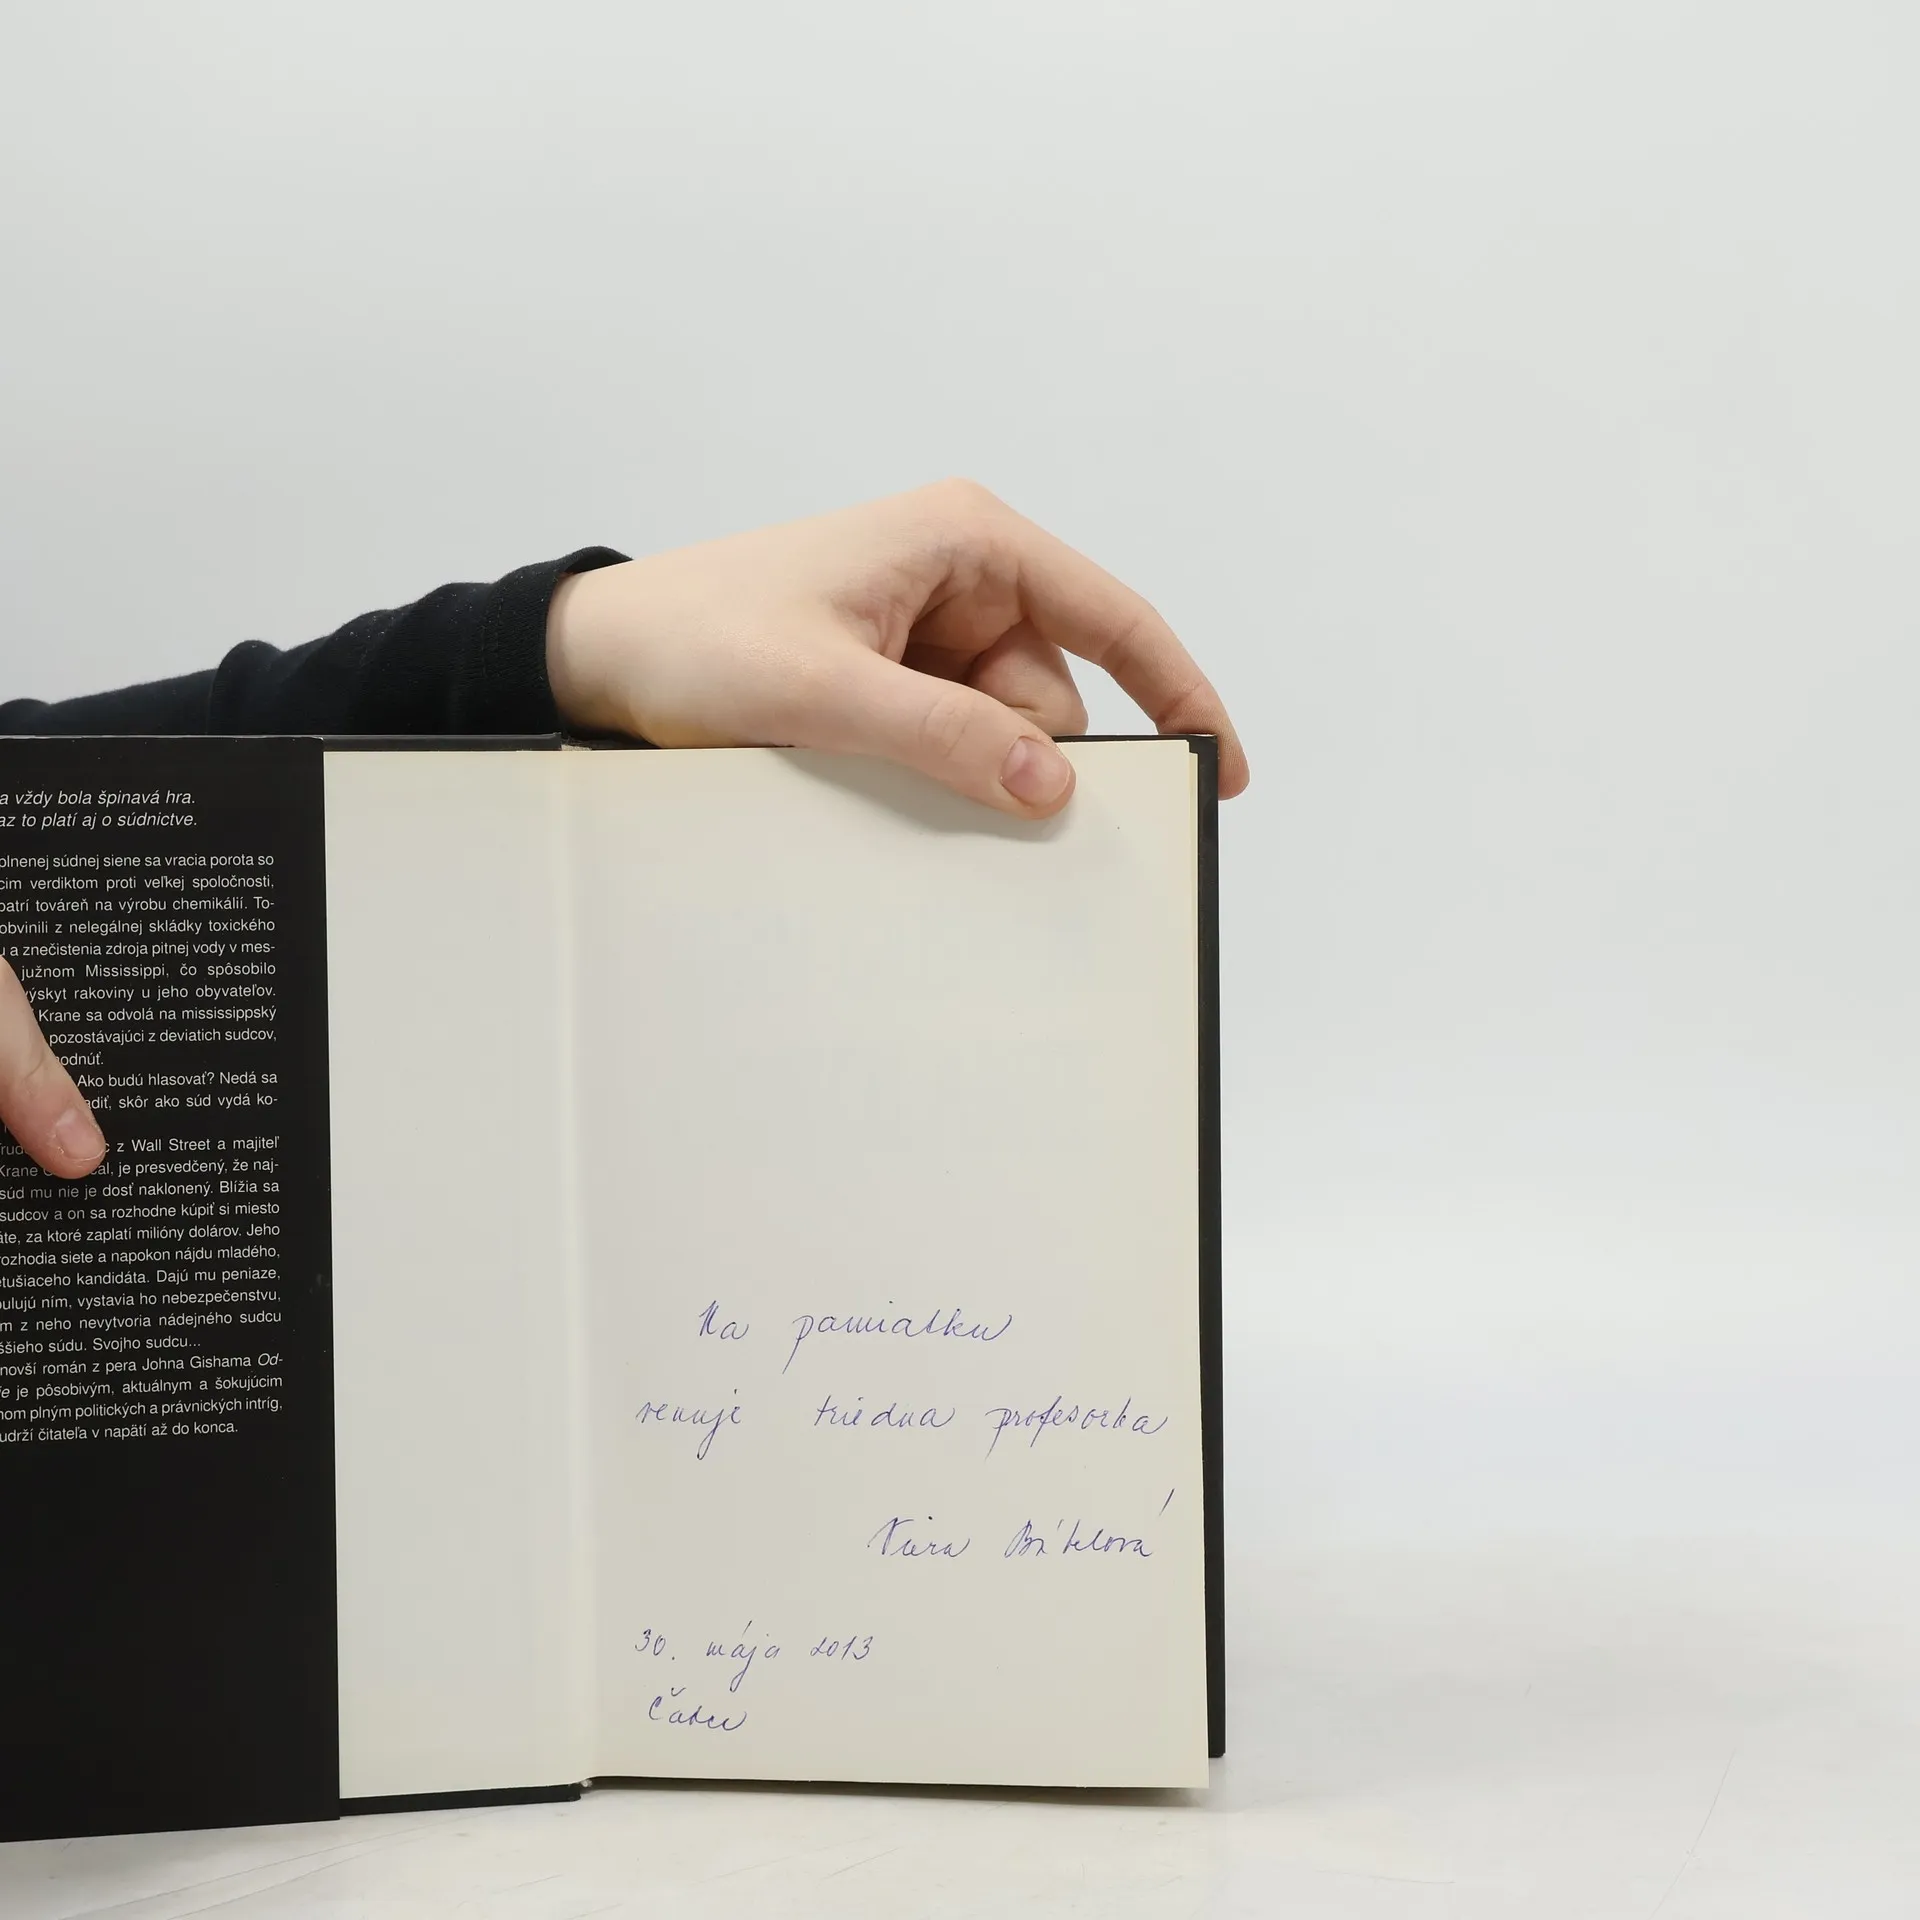 a vždy bola špinavá hra.
az to platí aj o súdnictve.
plnenej súdnej siene sa vracia porota so
cim verdiktom proti veľkej spoločnosti,
patrí továreň na výrobu chemikálií. To-
obvinili z nelegálnej skládky toxického
u a znečistenia zdroja pitnej vody v mes-
južnom Mississippi, čo spôsobilo
výskyt rakoviny u jeho obyvateľov.
Krane sa odvolá na mississippský
pozostávajúci z deviatich sudcov,
odnúť.
Ako budú hlasovať? Nedá sa
adiť, skôr ako súd vydá ko-
z Wall Street a majiteľ
Krane cal, je presvedčený, že naj-
súd mu nie je dosť naklonený. Blížia sa
sudcov a on sa rozhodne kúpiť si miesto
áte, za ktoré zaplatí milióny dolárov. Jeho
rozhodia siete a napokon nájdu mladého,
etušiaceho kandidáta. Dajú mu peniaze,
pulujú ním, vystavia ho nebezpečenstvu,
m z neho nevytvoria nádejného sudcu
ššieho súdu. Svojho sudcu...
novší román z pera Johna Gishama Od-
ie je pôsobivým, aktuálnym a šokujúcim
nom plným politických a právnických intríg,
udrží čitateľa v napätí až do konca.
Na pamiatku
venuje triedna profesorka
Viera
30. mája 2013